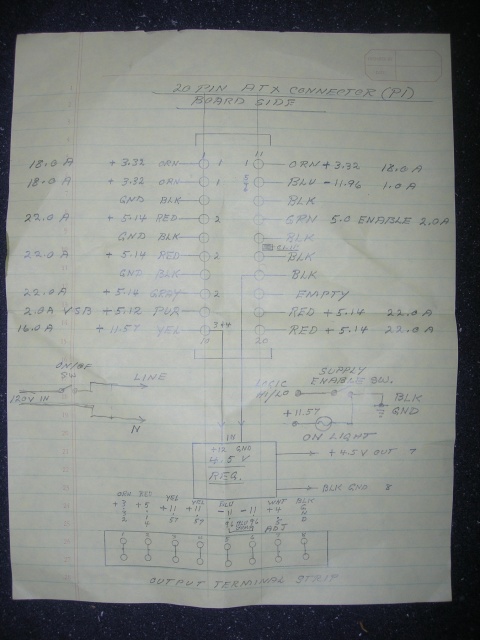 20 PIN ATX CONNECTOR (P1)
BOARD SIDE
1 11
18.0 A +3.32 ORN 1 1 ORN +3.32 18.0 A
18.0 A +3.32 ORN 1 BLU -11.96 1.0 A
GND BLK BLK
22.0 A +5.14 RED 2 GRN 5.0 ENABLE 2.0 A
GND BLK BLK
22.0 A +5.14 RED 2 BLK
GND BLK BLK
22.0 A +5.14 GRAY 2 EMPTY
2.0 A VSB +5.12 PUR RED +5.14 22.0 A
16.0 A +11.57 YEL 3+4 RED +5.14 22.0 A
10 20
ON/OFF SW
LINE
120V IN
N
SUPPLY
ENABLE SW.
LOGIC
HI/LO
BLK
GND
+11.57
ON LIGHT
+12 GND
4.5 V
REG.
+4.5V OUT 7
BLK GND 8
ORN RED YEL YEL BLU WHT BLK
+3.32 +5.14 +11.57 +11.57 -11.96 -11.96 +4.5 GND
ADJ
1 2 3 4 5 6 7 8
OUTPUT TERMINAL STRIP